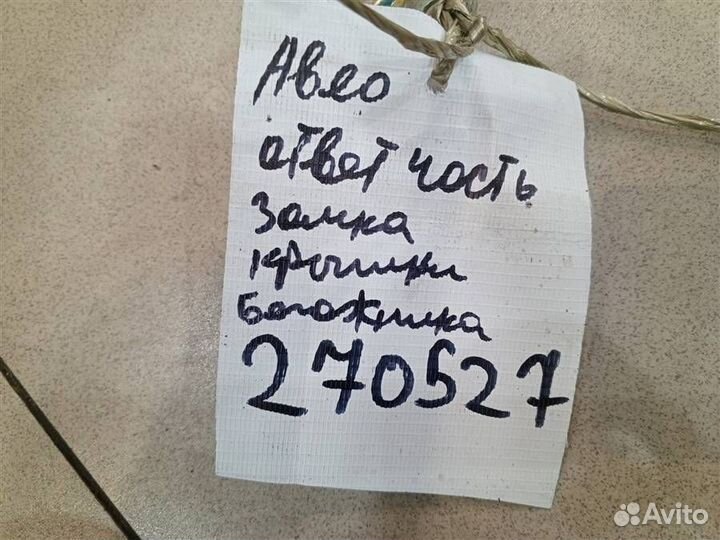 Авео
ответ часть
Замка
крышки
багажника
270527
Avito